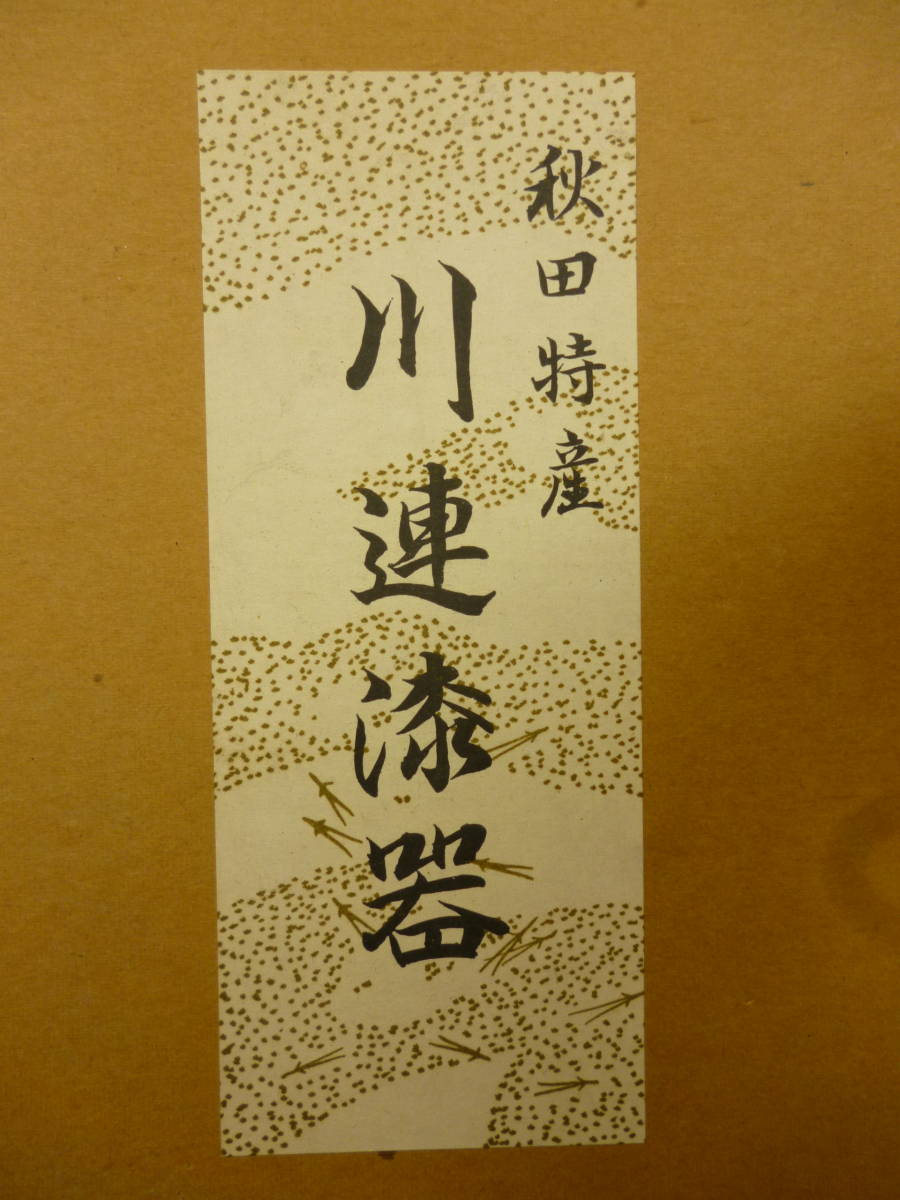 秋田特産
川連漆器